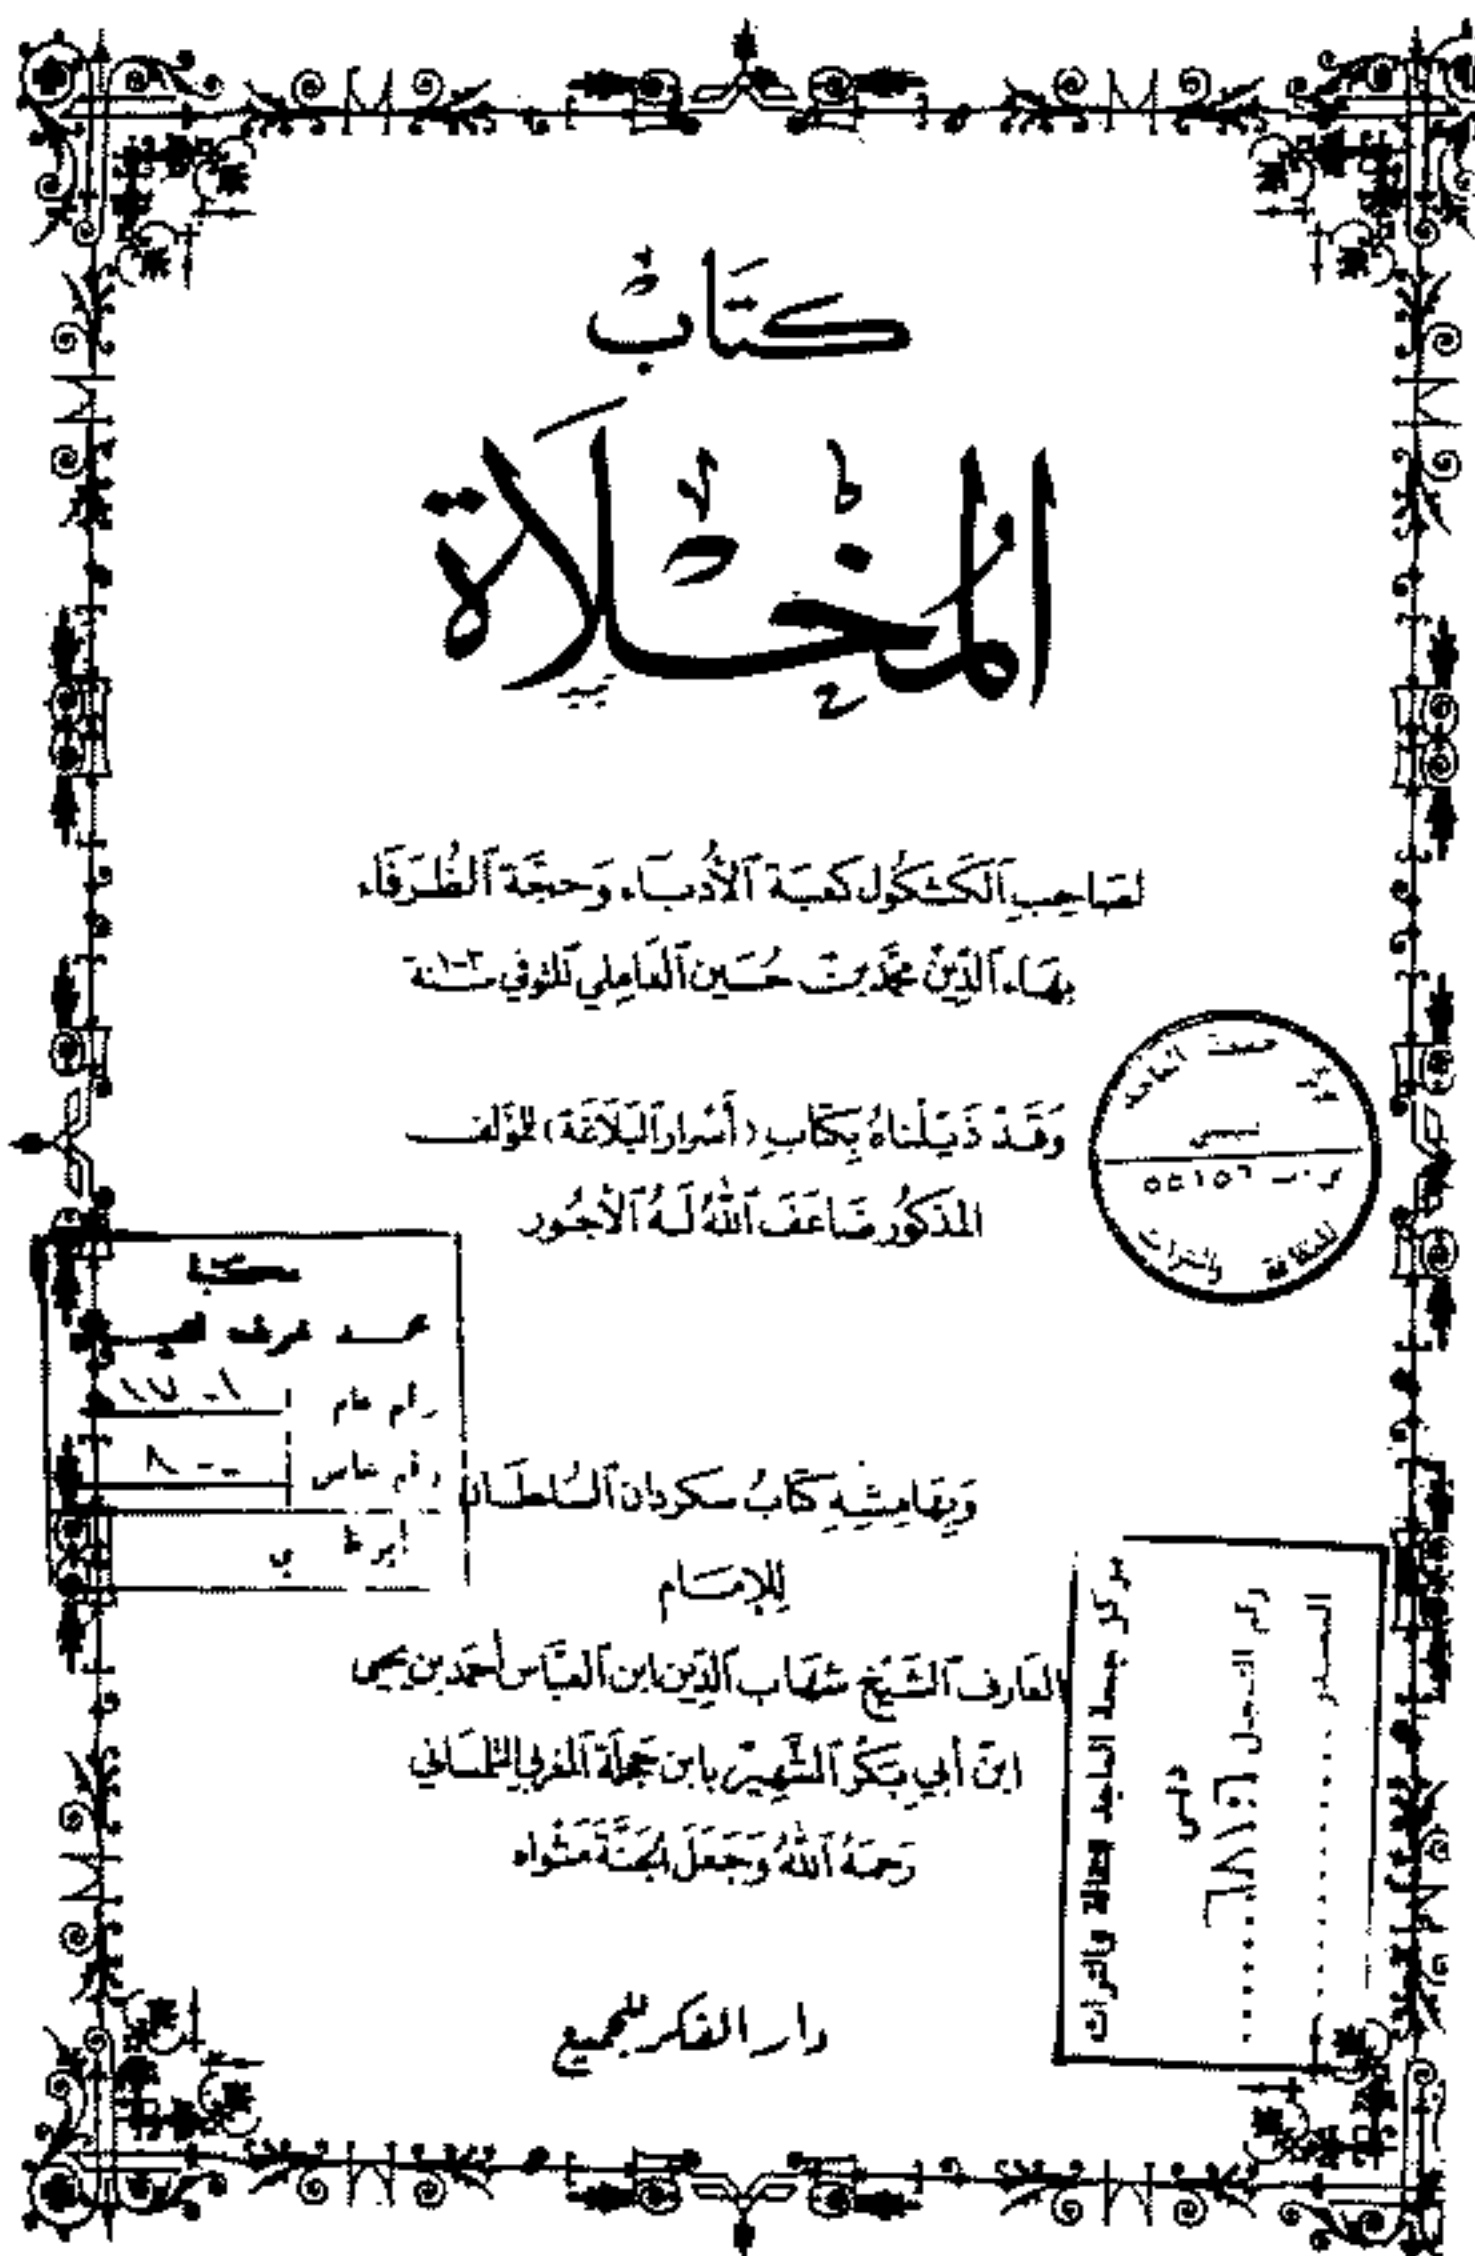 كتاب
المخلاة
لصاحب الكشكول كعبة الأدباء وحجة الظرفاء
بهاء الدين محمد بن حسين العاملي المتوفي سنة
وقد ذيلناه بكتاب (أسرار البلاغة) للمؤلف
المذكور ضاعف الله له الأجور
مكتبة
محمد
رقم عام
١٧٠١
رقم خاص
٨٠٠
وبهامشه كتاب سكردان السلطان
للإمام
العارف الشيخ شهاب الدين ابن العباس أحمد بن يحيى
ابن أبي بكر الشهير بابن حجلة المغربي التلمساني
رحمه الله وجعل الجنة مثواه
دار الفكر للجميع
مركز جمعة الماجد
للثقافة والتراث
دبي
ص.ب ٥٥١٥٦
مركز جمعة الماجد للثقافة والتراث
دبي
رقم التسجيل
المصدر